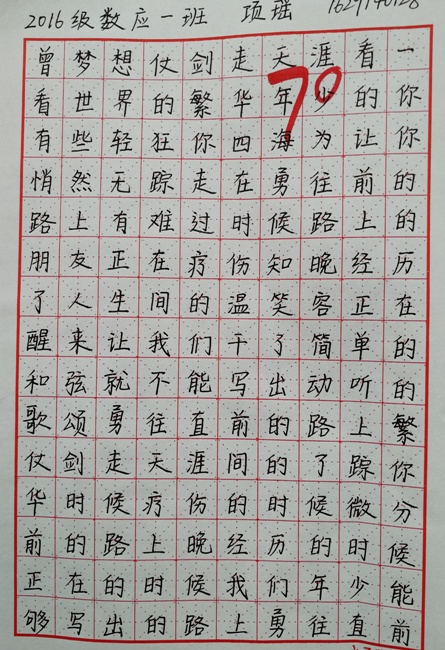 2016级数应一班 项瑶
曾梦想仗剑走天涯看一
看世界的繁华年少的你
有些轻狂你四海为让你
悄然无踪走在勇往前的
路上有难过时候路上的
朋友正在疗伤知晚经历
了人生间的温笑客正在
醒来让我们干了简单的
和弦就不能写出动听的
歌颂勇往直前的路上繁
仗剑走天涯间的了踪你
华时候疗伤的时候微分
前的路上晚经历的时候
正在的时候我们年少能
够写出的路上勇往直前
70